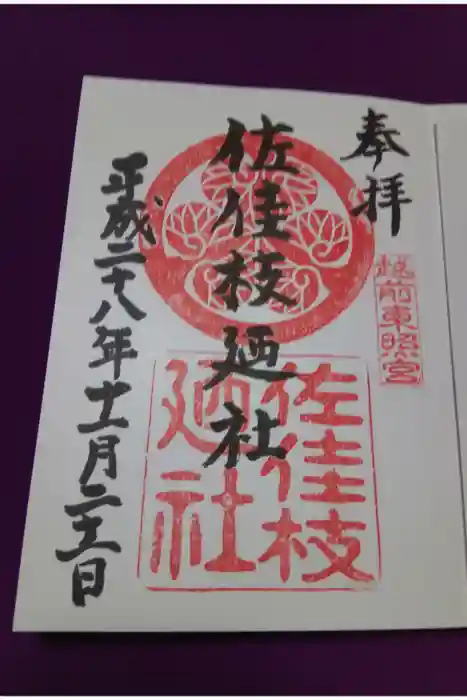 奉拝
越前東照宮
佐佳枝廼社
佐佳枝
廼社
平成二十八年十一月二十三日